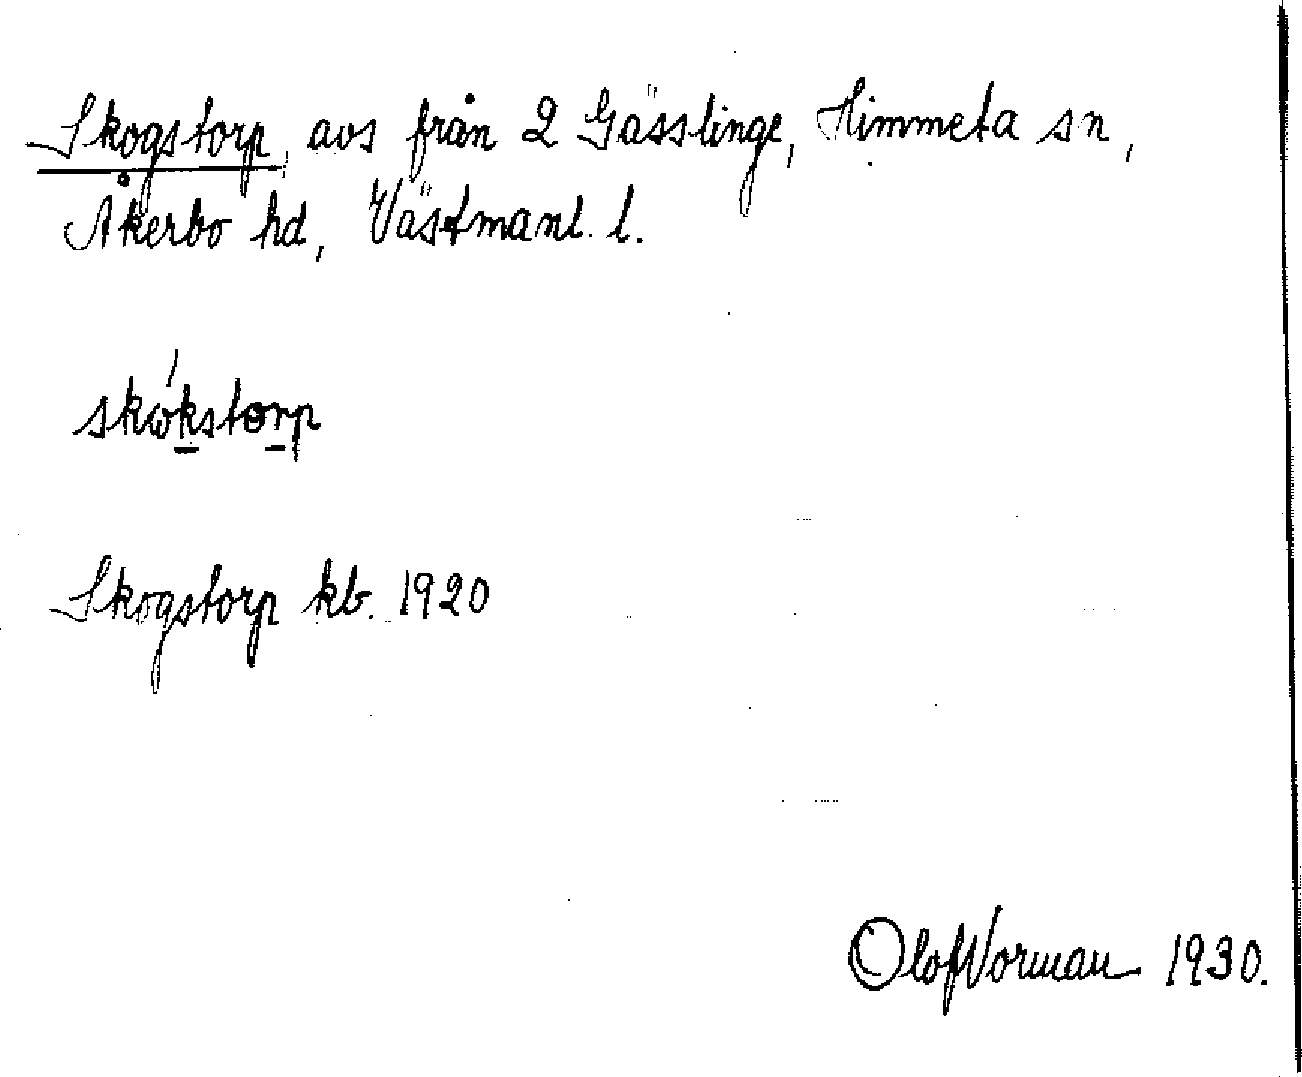 Skogstorp, avs från 2 Gässlinge, Himmeta sn,
Åkerbo hd, Västmanl. l.
skωḱstɵrp
Skogstorp kb. 1920
Olof Norman 1930.